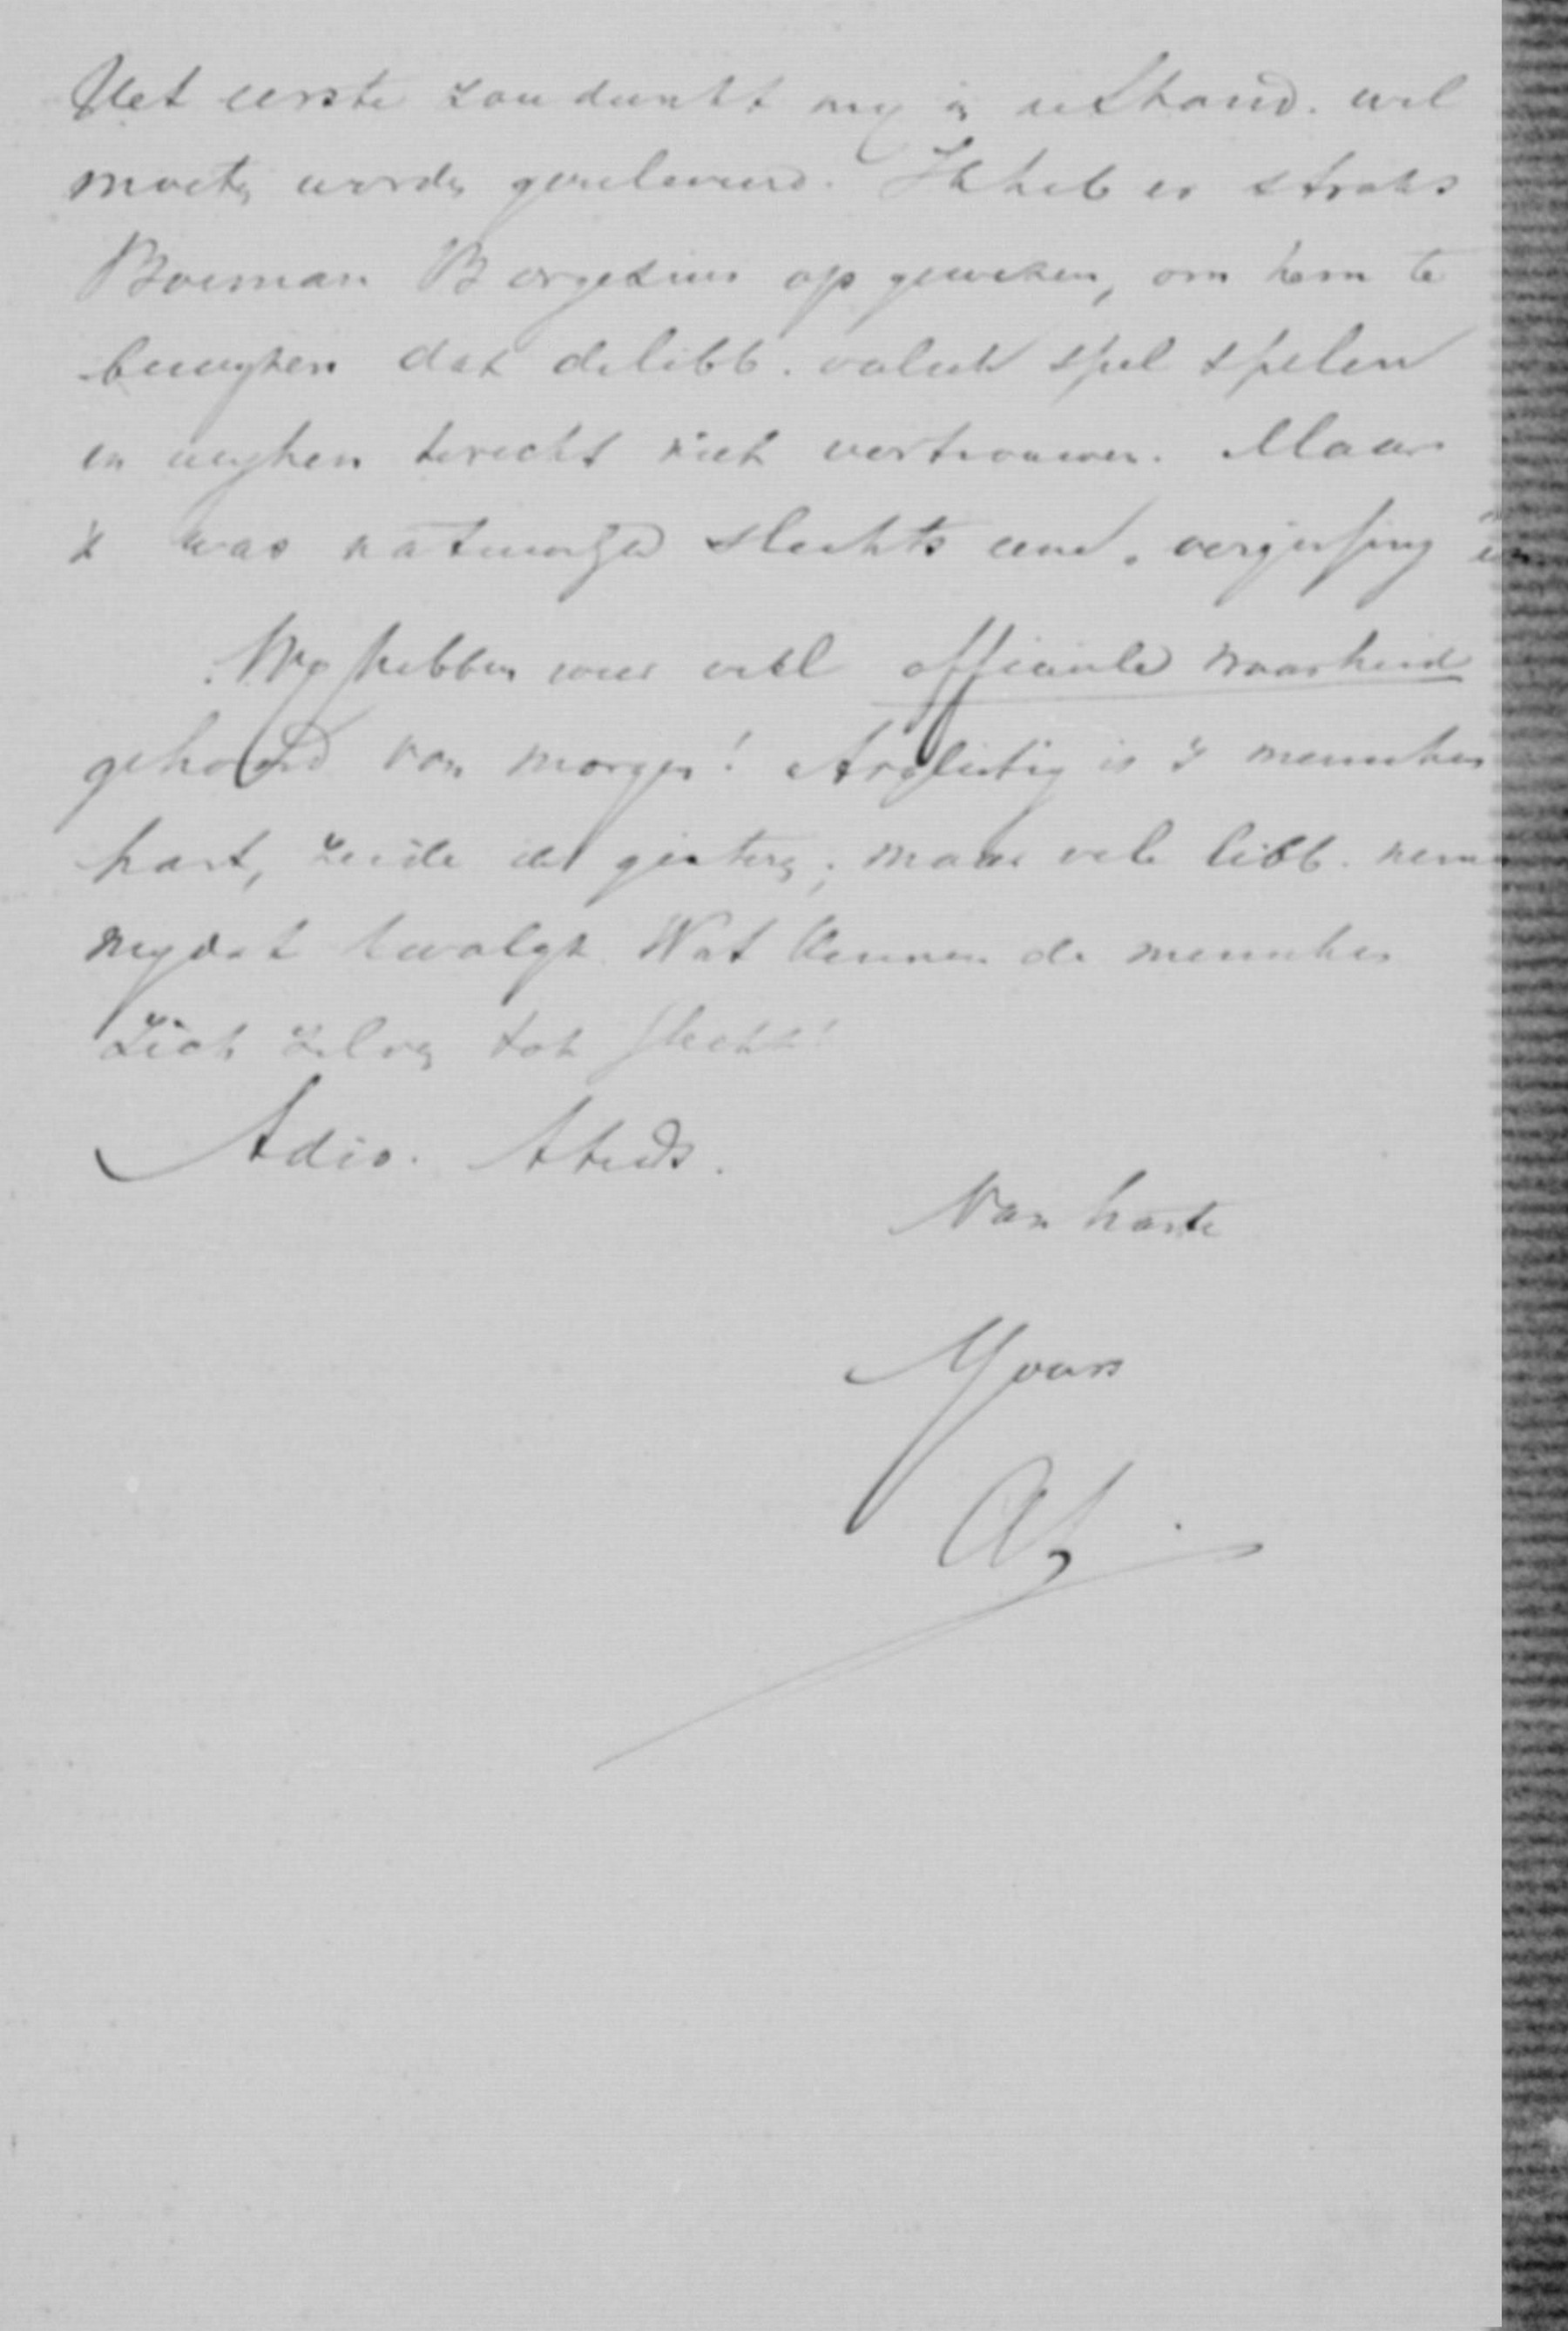 Het eerste zou dunkt my in uw Stand. wel
moeten worden gereleveerd. Ik heb er straks
Boeman Borgesius op gewezen, om hem te
bewyzen dat de libb. valsch spel spelen
en wy hen terecht niet vertrouwen. Maar
't was natuurlyk slechts eene vergissing
Wy hebben weer veel officieele waarheid
gehoord van morgen! Arglistig is 's menschen
hart, zeide ik gisteren; maar vele libb.
my dat kwalyk. Wat kennen de menschen
zich zelven toch slecht!
Adio. Steeds.
Van harte
Yours